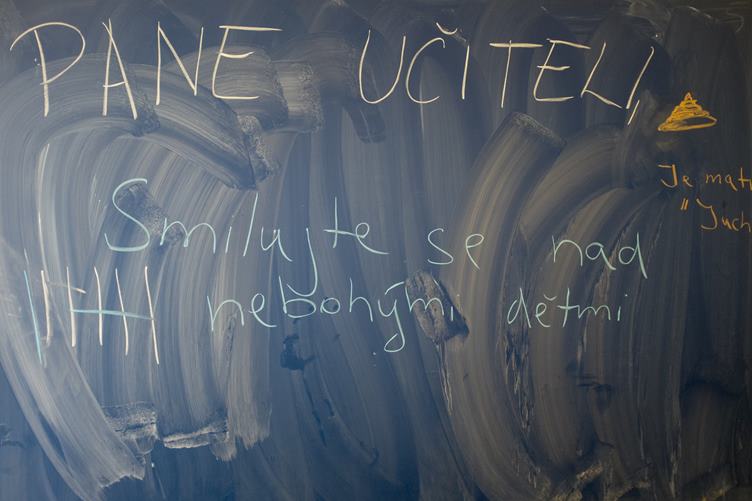 PANE UČITELI,
Smilujte se nad
nebohými dětmi
Je